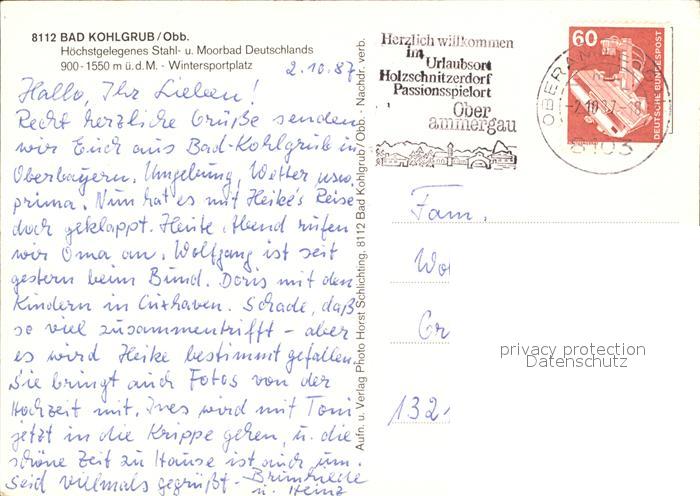 8112 BAD KOHLGRUB/Obb.
Höchstgelegenes Stahl- u. Moorbad Deutschlands
900-1550 m ü.d.M. - Wintersportplatz
2.10.87
Hallo, Ihr Lieben!
Recht herzliche Grüße senden
wir Euch aus Bad-Kohlgrub in
Oberbayern. Umgebung, Wetter usw.
prima. Nun hat es mit Heike's Reise
doch geklappt. Heute Abend rufen
wir Oma an. Wolfgang ist seit
gestern beim Bund. Doris mit den
Kindern in Cuxhaven. Schade, daß
so viel zusammentrifft - aber
es wird Heike bestimmt gefallen.
Sie bringt auch Fotos von der
Hochzeit mit. Ines wird mit Toni
jetzt in die Krippe gehen, u. die
schöne Zeit zu Hause ist auch um.
Seid vielmals gegrüßt - Brunhilde
u. Heinz
Aufn. u. Verlag Photo Horst Schlichting, 8112 Bad Kohlgrub/Obb. - Nachdr. verb.
Herzlich willkommen
im
Urlaubsort
Holzschnitzerdorf
Passionsspielort
Ober
ammergau
60
DEUTSCHE BUNDESPOST
OBERAM
-2.10.87-18
8103
Fam.
Wo
Gr
132
privacy protection
Datenschutz